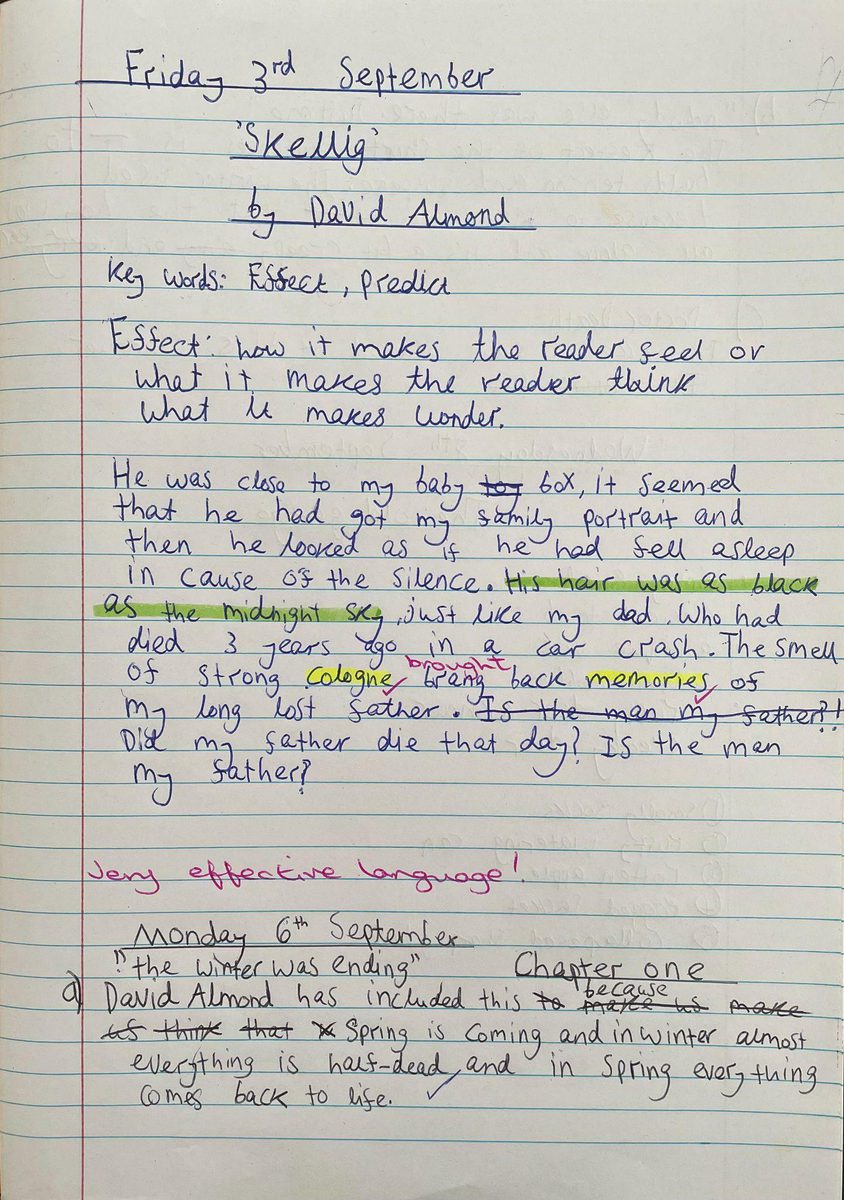 Friday 3rd September
'Skellig'
by David Almond
Key words: Effect, predict
Effect: how it makes the reader feel or
what it makes the reader think
what it makes wonder.
He was close to my baby toy box, it seemed
that he had got my family portrait and
then he looked as if he had fell asleep
in cause of the silence. His hair was as black
as the midnight sky, just like my dad. Who had
died 3 years ago in a car crash. The smell
brought
of strong cologne brang back memories of
my long lost father. Is the man my father?!
Did my father die that day? Is the man
my father?
Very effective language!
Monday 6th September
"the winter was ending" Chapter one
because
a) David Almond has included this to make us make
us think that Spring is coming and in winter almost
everything is half-dead and in spring everything
comes back to life.